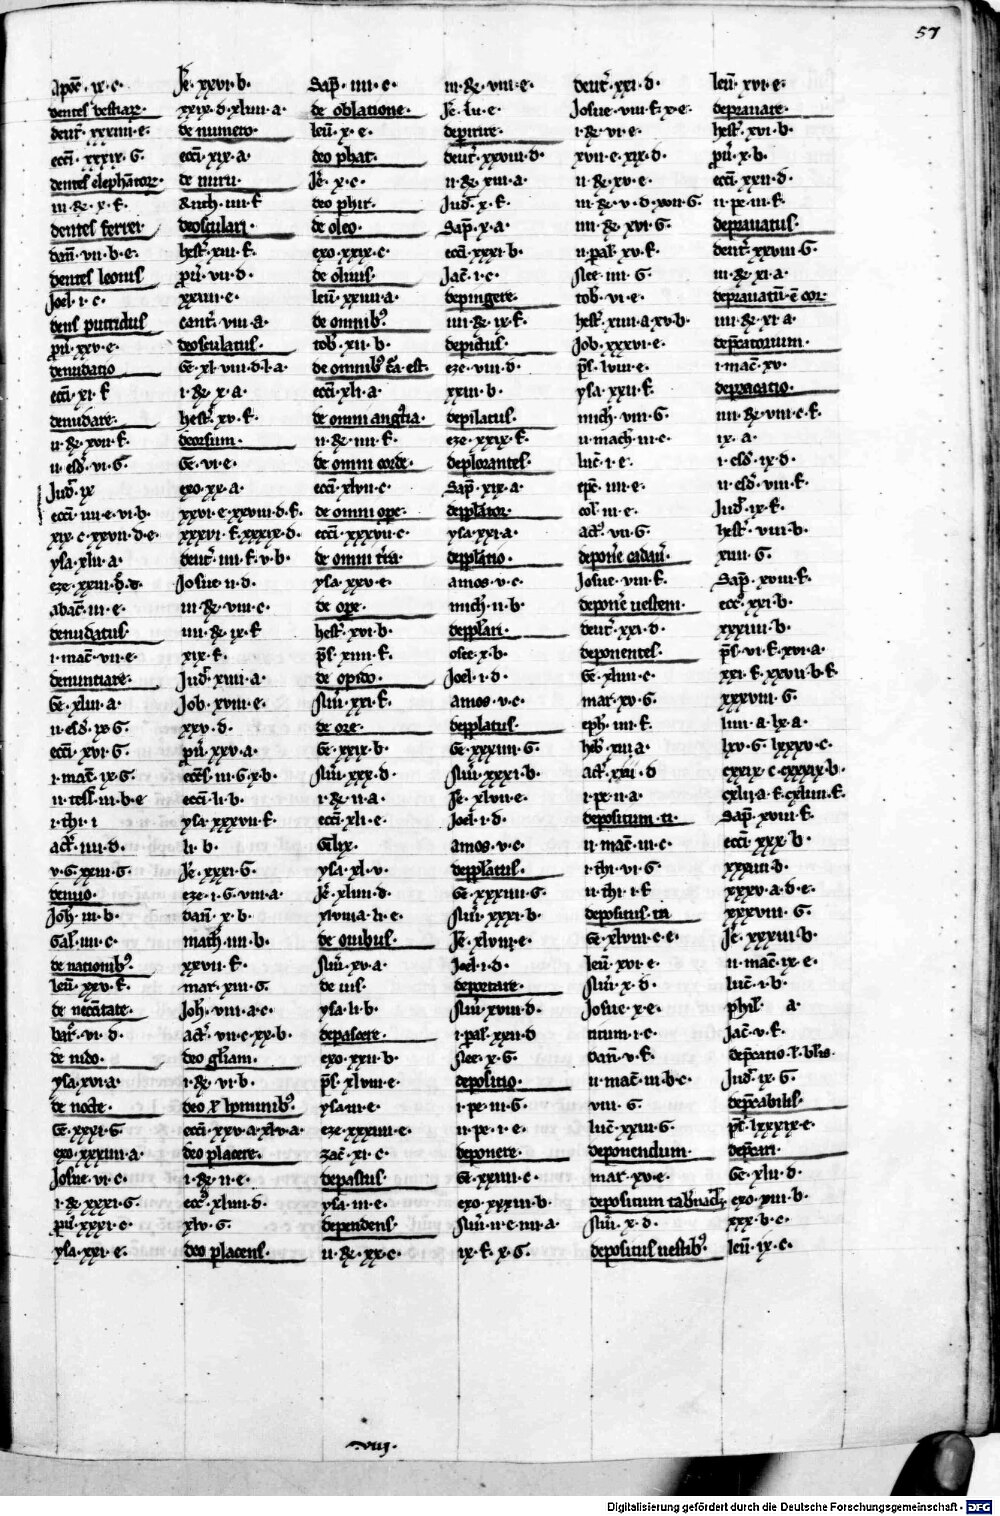 57
Apoc̄·ix·c·
dentes bestiaꝝ·
deut̄·xxxiiii·e·
ecci̅·xxxix·G·
dentes elephantoꝝ·
iii·&·x·f·
dentes ferrei
dan̄·vii·b·e·
dentes leonis
Joel·i·c·
dens putridus
ꝓu̅·xxv·e·
denudatio
ecci̅·xi·f
denudare·
ii·&·xvii·f·
ii·esd̄·vi·G·
Jud̄·ix
ecci̅·iiii·e·vi·b·
xix·c·xxvii·d·e·
ysa·xlii·a·
abac̄·iii·e·
denudatus·
i·mac̄·vii·e·
denuntiare·
Ge·xliii·a·
ii·esd̄·ix·G·
ecci̅·xvi·G·
i·mac̄·ix·G·
ii·tess̄·iii·b·e
i·thi·i
act̄·iiii·d·
v·G·xxiii·G·
denuo·
Joh̄·iii·b·
Gal̄·iiii·c·
de nationibꝰ·
leui̅·xxv·f·
de necc̄itate·
bar̄·vi·d·
de nido·
ysa·xvi·a·
de nocte·
Ge·xxxi·G·
exo·xxxiiii·a·
Josue·vi·c·
i·&·xxxi·G·
ꝓu̅·xxxi·c·
ysa·xxi·e·
Je̅·xxvi·b·
xxix·d·xliiii·a·
de numero·
ecci̅·xix·a·
de nuru·
Ruth·iiii·f
deosculari·
hest̄·xiii·f·
ꝓu̅·vii·d·
xxiiii·e·
cant̄·viii·a·
deosculatus·
Ge·xl·viii·d·l·a·
i·&·x·a·
hest̄·xv·f·
deorsum·
Ge·vi·e·
exo·xx·a·
xxvi·e·xxviii·d·f·
xxxvi·f·xxxix·d·
deut̄·iiii·f·v·b·
Josue·ii·d·
iii·&·viii·c·
iiii·&·ix·f
xix·f·
Jud̄·xiii·a·
Job·xviii·e·
xxv·d·
ꝓu̅·xxv·a·
ecc̄s·iii·G·x·b·
ecci̅·li·b·
ysa·xxxvii·f·
li·b·
Je̅·xxxi·G·
eze·i·G·viii·a·
dan̄·x·b·
mach̄·iiii·b·
xxvii·f·
mar·xiii·G·
Joh̄·viii·a·c·
act̄·vii·c·xx·b·
deo gl̄iam·
i·&·vi·b·
deo & hominibꝰ·
ecci̅·xxv·a·xlv·a·
deo placere·
i·&·ii·e·
ecc̄·xliiii·d·
xlv·G·
deo placens·
Sap̄·iiii·c·
de oblatione·
leui̅·x·e·
deo phat·
Je̅·x·c·
deo phir·
de oleo·
exo·xxix·c·
de oliuis·
leui̅·xxiiii·a·
de omnibꝰ·
tob̄·xii·b·
de omnibꝰ c̄a est·
ecci̅·xli·a·
de omni angl̄ia·
ii·&·iiii·f·
de omni corde·
ecci̅·xlvii·c·
de omni ope·
ecci̅·xxxvii·c·
de omni tr̄a·
ysa·xxv·e·
de ope·
hest̄·xvi·b·
p̄s·xiiii·f·
de opido·
Nu̅·xxi·f·
de ore·
Ge·xxix·b·
Nu̅·xxx·d·
i·&·ii·a·
ecci̅·xli·e·
ysa·xl·v·
Je̅·xliiii·d·
xlviii·a·li·e·
de ouibus·
Nu̅·xv·a·
de uis·
ysa·li·b·
depascere·
exo·xxii·b·
p̄s·xlviii·e·
ysa·iii·e·
eze·xxxiiii·e·
zac̄·xi·c·
depastus·
ysa·iii·e·
dependens·
ii·&·xx·c·
iii·&·viii·e·
Je̅·lii·e·
deperire·
deut̄·xxviii·d·
ii·&·xiii·a·
Jud̄·x·f·
Sap̄·x·a·
ecci̅·xxxi·b·
Jac̄·i·c·
depingere·
iiii·&·ix·f·
depictus·
eze·viii·d·
xxiii·b·
depilatus·
eze·xxix·f·
deplorantes·
Sap̄·xix·a·
depp̄lator·
ysa·xxi·a·
depp̄latio·
amos·v·c·
mich̄·ii·b·
depp̄lari·
osee·x·b·
Joel·i·d·
amos·v·c·
depp̄latus·
Ge·xxxiiii·G·
Nu̅·xxxi·b·
Je̅·xlvii·e·
Joel·i·d·
amos·v·c·
depp̄latus·
Ge·xxxiiii·G·
Nu̅·xxxi·b·
Je̅·xlviii·e·
Joel·i·d·
deportare·
Nu̅·xviii·d·
i·pal̄·xxii·d
Nee·x·G·
depositio·
i·pe·iii·G·
ii·pe·i·e·
deponere·
Ge·xxiiii·c·
exo·xxxiii·b·
Nu̅·ii·e·iiii·a·
ix·f·x·G·
deut̄·xxi·d·
Josue·viii·f·x·e·
i·&·vi·e·
xvii·c·xix·d·
ii·&·xv·e·
iii·&·v·d·xvii·G·
iiii·&·xvi·G·
ii·pal̄·xv·f·
Nee·iiii·G·
tob̄·vi·e·
hest̄·xiiii·a·xv·b·
Job·xxxvi·e·
p̄s·lviii·e·
ysa·xxii·f·
mich·viii·G·
ii·mach̄·iii·c·
luc̄·i·e·
epc̄·iiii·e·
col̄·iii·e·
act̄·vii·G·
depone cadau̅·
Josue·viii·f·
depone uestem·
deut̄·xxi·d·
deponentes·
Ge·xliiii·c·
mar·xv·G·
eph̄·iiii·f·
heb̄·xiii·a·
act̄·xxii·d
i·pe·ii·a·
depositum ti·
ii·mac̄·iii·c·
i·thi·vi·G·
ii·thi·i·f
depositus in
Ge·xlviii·c·e·
leui̅·xvi·e·
Nu̅·x·d·
Josue·x·e·
titum·i·c·
dan̄·v·f·
ii·mac̄·iii·b·c·
viii·G·
luc̄·xxiii·G·
deponendum·
mar·xv·e·
depositum tab̄nac̄l·
Nu̅·x·d·
depositus uestibꝰ·
leui̅·xvi·e·
depranare·
hest̄·xvi·b·
ꝓu̅·x·b·
ecci̅·xxii·d·
ii·pe·iii·f·
deprauatus·
deut̄·xxviii·G·
iii·&·xi·a·
deprauatu̅ e̅ cor·
iiii·&·xi·a·
dep̄catorium·
i·mac̄·xv·
deprecatio·
iiii·&·viii·c·f·
ix·a·
i·esd̄·ix·d·
ii·esd̄·viii·f·
Jud̄·ix·f·
hest̄·viii·b·
xiiii·G·
Sap̄·xviii·f·
ecc̄·xxi·b·
xxxiiii·b·
p̄s·vi·f·xvi·a·
xxi·f·xxvii·b·f·
xxxviii·G·
liiii·a·lx·a·
lxv·G·lxxxv·c·
cxxix·c·cxxxix·b·
cxlii·a·f·cxliiii·f·
Sap̄·xviii·f·
ecci̅·xxx·b·
xxxiiii·b·
xxxv·a·d·e·
xxxviii·G·
Je̅·xxxiii·b·
ii·mac̄·ix·e·
luc̄·i·b·
phil̄ a·
Jac̄·v·f·
Jud̄·ix·G·
dep̄cabilis·
p̄s·lxxxix·e·
dep̄cari·
Ge·xlii·d·
exo·viii·b·
xxx·b·c·
leui̅·ix·c·
viij·
Digitalisierung gefördert durch die Deutsche Forschungsgemeinschaft - DFG